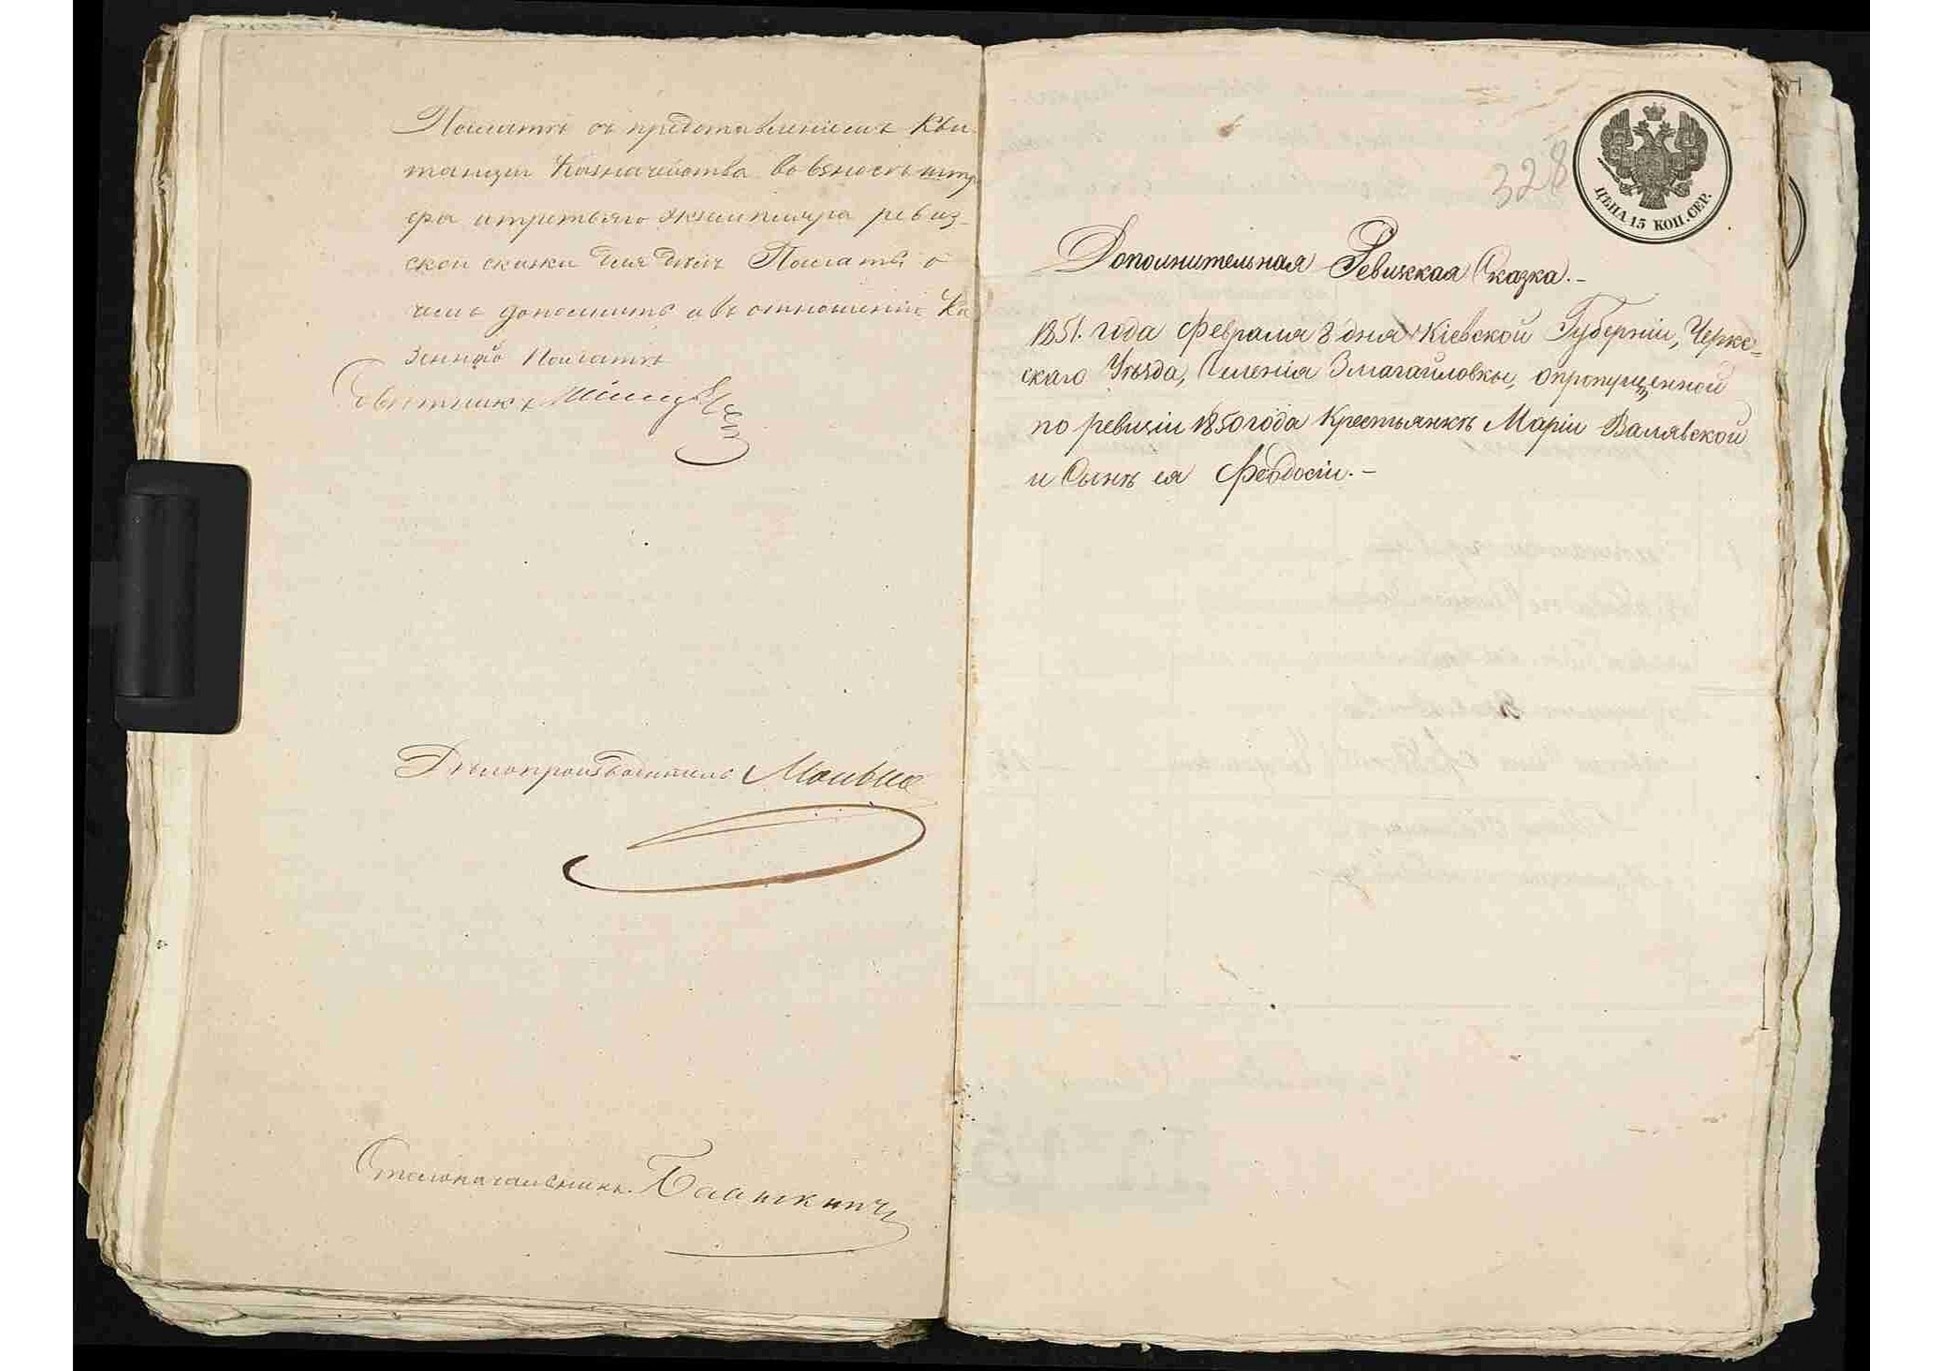 Палаты съ представленіемъ Кви-
танціи Казначейства во взносѣ штра-
фа и третьяго экземпляра ревиз-
ской сказки для Палаты о
чемъ дополнить и въ отношеніи Ка-
зенной Палаты
Совѣтникъ
Дѣлопроизводитель
Столоначальникъ
328
ЦѢНА 15 КОП. СЕР.
Дополнительная Ревизская Сказка.-
1851. года Февраля 8 дня Кіевской Губерніи, Черка-
скаго Уѣзда, Селенія Змагайловки, опропущенной
по ревизіи 1850 года Крестьянкѣ Маріи Валявской
и Сынѣ ея Феодосіи.-